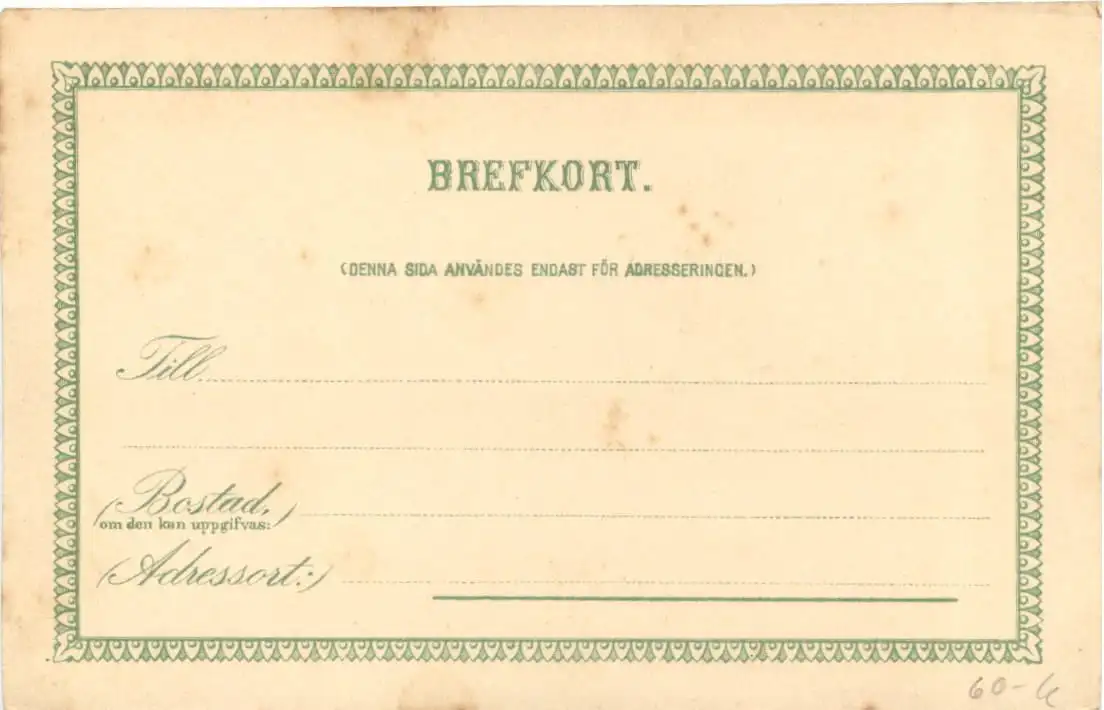 BREFKORT.
(DENNA SIDA ANVÄNDES ENDAST FÖR ADRESSERINGEN.)
Till
(Bostad,
om den kan uppgifvas:)
(Adressort:)
60-